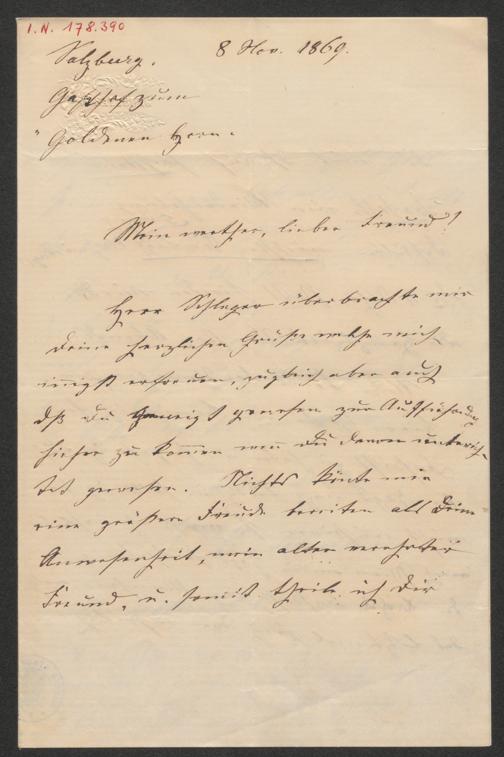 I.N. 178.390
Salzburg. 8 Nov. 1869.
Gasthof zum
"Goldenen Horn"
Mein werther, lieber Freund!
Herr Schlager überbrachte mir
Deine herzlichen Grüße welche mich
innigst erfreuen, zugleich aber auch
dß Du geneigt gewesen zur Aufführung
hieher zu kommen wenn Du davon unterrich-
tet gewesen. Nichts könnte mir
eine größere Freude bereiten als Deine
Anwesenheit, mein alter verehrter
Freund, u. somit theile ich Dir